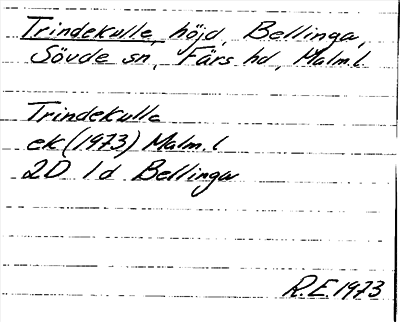 Trindekulle, höjd, Bellinga,
Sövde sn, Färs hd, Malm.l.
Trindekulle
ek (1973) Malm. l
2D 1 d Bellinga
R.E. 1973